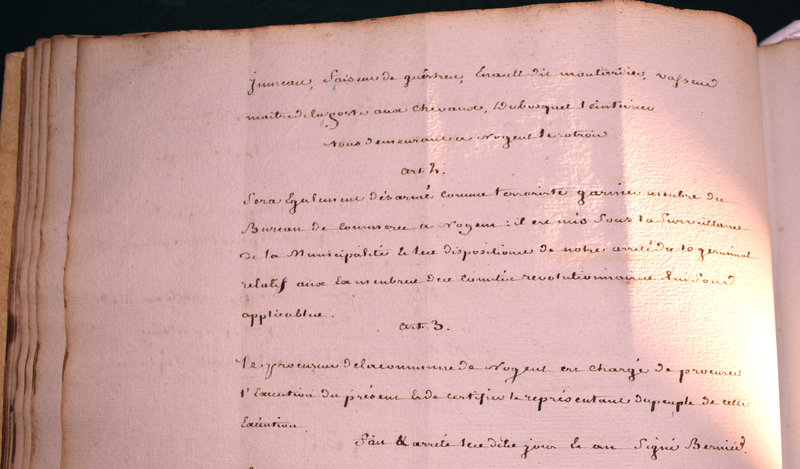 juneau, faiseur de guêtres, Enault dit moutardier, vasseur
maitre de la poste aux chevaux, Dubosquet teinturier
tous demeurant a Nogent le rotrou
art. 2.
Sera Egalement désarmé comme terroriste garnier membre du
Bureau de Commerce a Nogent : il est mis sous la surveillance
de la Municipalité & les dispositions de notre arrêté du 10 germinal
relatif aux Ex membres des comités revolutionnaires lui sont
applicables.
art. 3.
Le procureur de la commune de Nogent est chargé de procurer
l'Execution du présent & de certifier le représentant du peuple de cette
Exécution.
fait & arrêté les dits jour & an Signé Bernier